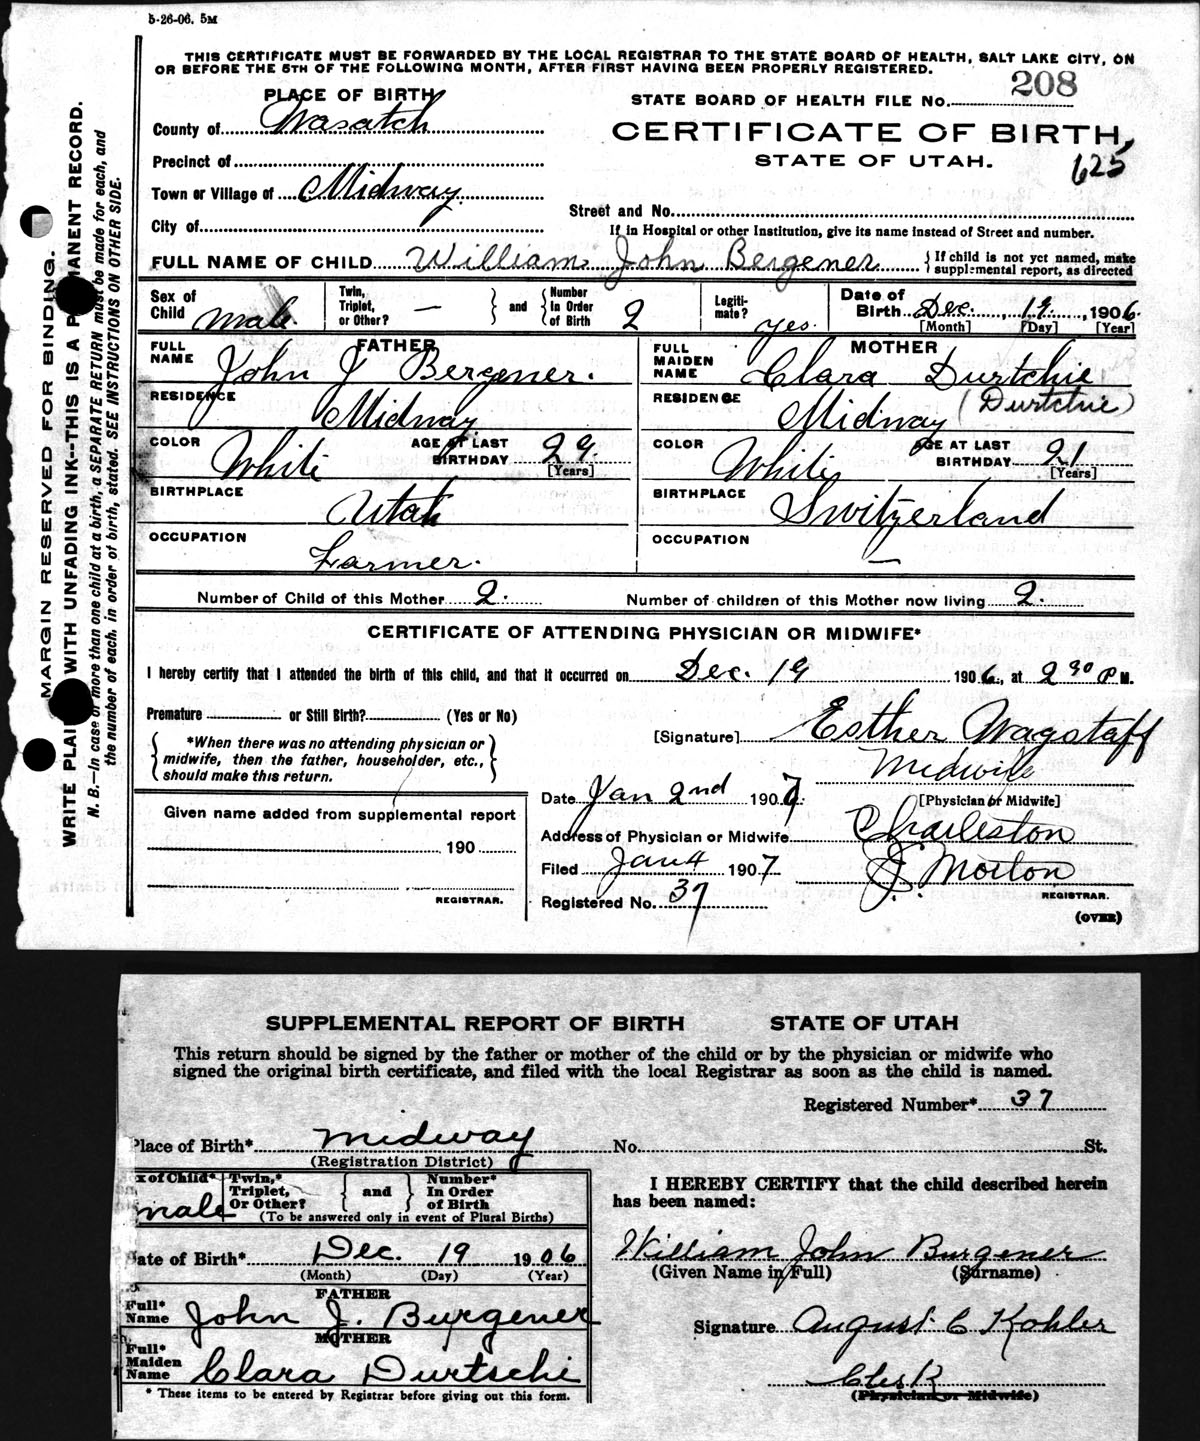 5-26-06. 5M
THIS CERTIFICATE MUST BE FORWARDED BY THE LOCAL REGISTRAR TO THE STATE BOARD OF HEALTH, SALT LAKE CITY, ON
OR BEFORE THE 5TH OF THE FOLLOWING MONTH, AFTER FIRST HAVING BEEN PROPERLY REGISTERED.
MARGIN RESERVED FOR BINDING.
WRITE PLAINLY WITH UNFADING INK--THIS IS A PERMANENT RECORD.
N. B.—In case of more than one child at a birth, a SEPARATE RETURN must be made for each, and
the number of each, in order of birth, stated. SEE INSTRUCTIONS ON OTHER SIDE.
PLACE OF BIRTH
STATE BOARD OF HEALTH FILE No. 208
County of Wasatch
CERTIFICATE OF BIRTH,
Precinct of
STATE OF UTAH.
625
Town or Village of Midway
Street and No.
City of
If in Hospital or other Institution, give its name instead of Street and number.
FULL NAME OF CHILD William John Bergener { If child is not yet named, make supplemental report, as directed
Sex of Child male Twin, Triplet, or Other? — and Number In Order of Birth 2 Legitimate? yes. Date of Birth Dec. 19. 1906.
[Month] [Day] [Year]
FATHER MOTHER
FULL NAME John J Bergener. FULL MAIDEN NAME Clara Durtchie
RESIDENCE Midway RESIDENCE Midway (Durtchie)
COLOR White AGE AT LAST BIRTHDAY 29. [Years] COLOR White AGE AT LAST BIRTHDAY 21 [Years]
BIRTHPLACE Utah BIRTHPLACE Switzerland
OCCUPATION Farmer. OCCUPATION —
Number of Child of this Mother 2. Number of children of this Mother now living 2.
CERTIFICATE OF ATTENDING PHYSICIAN OR MIDWIFE*
I hereby certify that I attended the birth of this child, and that it occurred on Dec. 19 1906., at 2 30 P M.
Premature or Still Birth? (Yes or No)
*When there was no attending physician or
midwife, then the father, householder, etc.,
should make this return.
[Signature] Esther Wagstaff
Midwife
Date Jan 2nd 1907. [Physician or Midwife]
Given name added from supplemental report
190
REGISTRAR.
Address of Physician or Midwife Charleston
Filed Jan 4 1907 J. Morton
REGISTRAR.
Registered No. 37
(OVER)
SUPPLEMENTAL REPORT OF BIRTH STATE OF UTAH
This return should be signed by the father or mother of the child or by the physician or midwife who
signed the original birth certificate, and filed with the local Registrar as soon as the child is named.
Registered Number* 37
Place of Birth* Midway No. St.
(Registration District)
Sex of Child* male Twin,* Triplet, Or Other? and Number* In Order of Birth
(To be answered only in event of Plural Births)
Date of Birth* Dec. 19 1906
(Month) (Day) (Year)
FATHER
Full* Name John J. Burgener
MOTHER
Full* Maiden Name Clara Durtschi
* These items to be entered by Registrar before giving out this form.
I HEREBY CERTIFY that the child described herein
has been named:
William John Burgener
(Given Name in Full) (Surname)
Signature August C Kohler
Clerk
(Physician or Midwife)